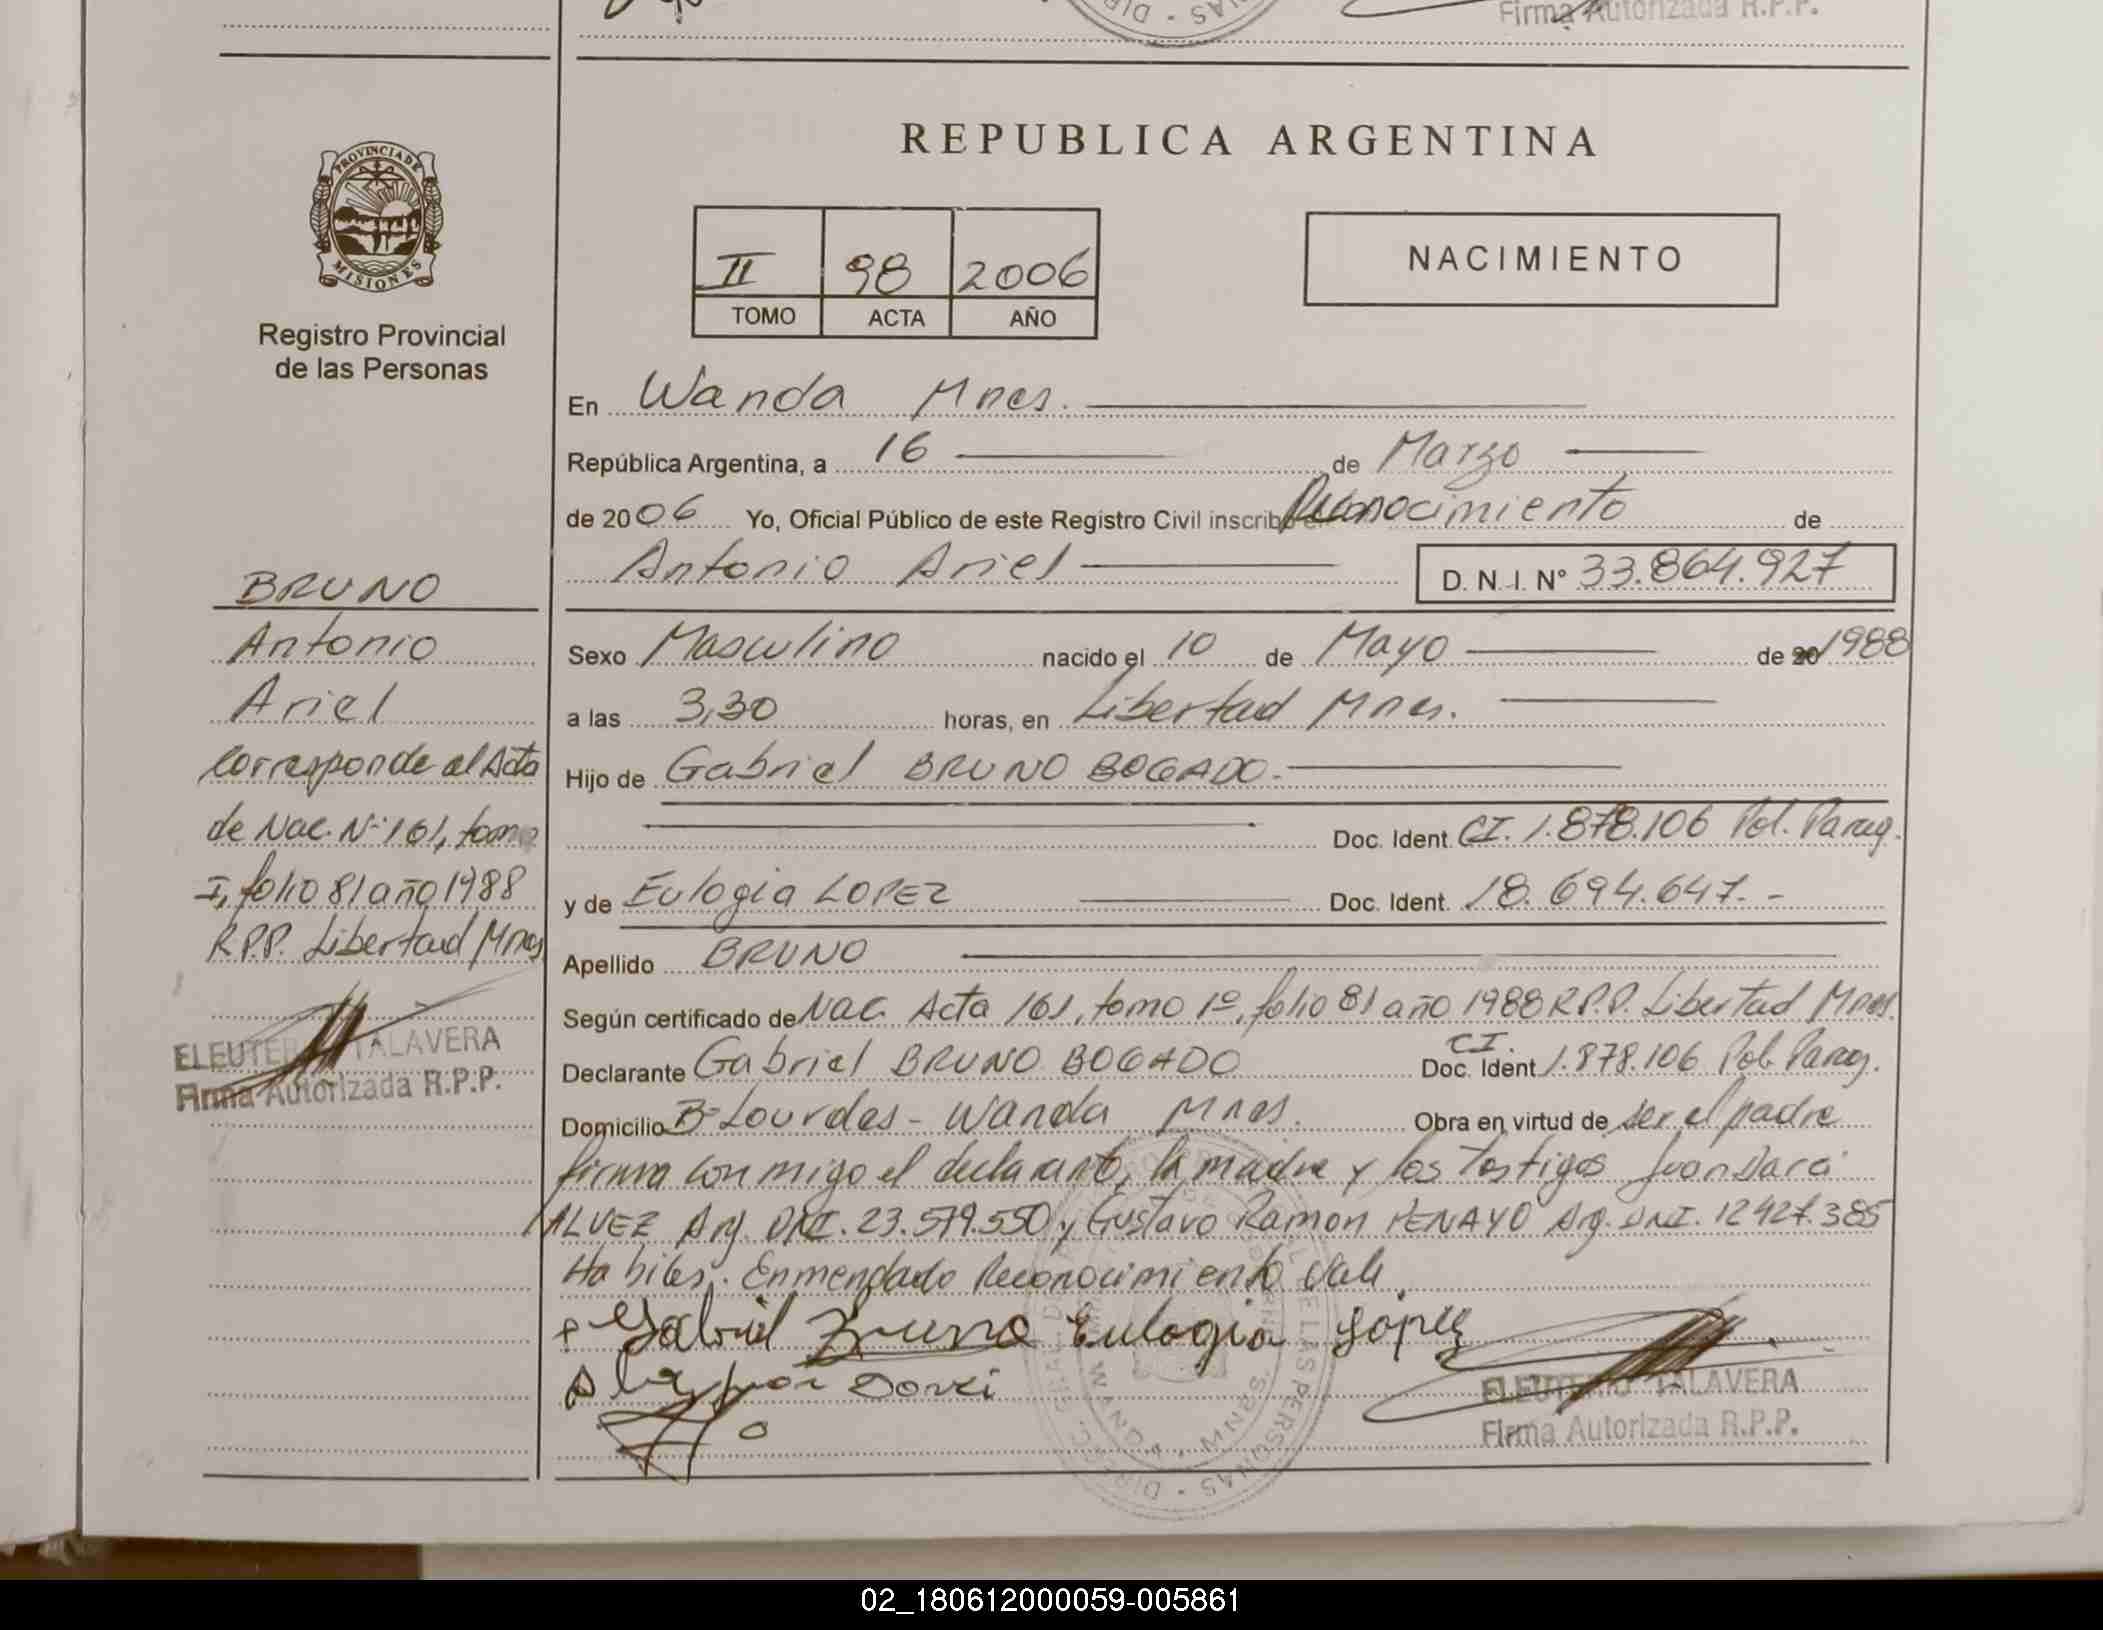 Firma Autorizada R.P.P.
DIR
NAS
PROVINCIA DE
MISIONES
Registro Provincial
de las Personas
REPUBLICA ARGENTINA
II 98 2006
TOMO ACTA AÑO
NACIMIENTO
En Wanda Mnes.
República Argentina, a 16 de Marzo
de 2006 Yo, Oficial Público de este Registro Civil inscribo el Reconocimiento de
Antonio Ariel D.N.I. Nº 33.864.927
Sexo Masculino nacido el 10 de Mayo de 20 1988
a las 3,30 horas, en Libertad Mnes.
Hijo de Gabriel BRUNO BOGADO.
Doc. Ident. CI. 1.878.106 Pol. Parag.
y de Eulogia LOPEZ Doc. Ident. 18.694.647.-
Apellido BRUNO
Según certificado de Nac. Acta 161, tomo 1º, folio 81 año 1988 R.P.P. Libertad Mnes.
Declarante Gabriel BRUNO BOGADO Doc. Ident. CI. 1.878.106 Pol. Parag.
Domicilio Bº Lourdes - Wanda Mnes. Obra en virtud de ser el padre
firma conmigo el declarante, la madre y los Testigos Juan Darci
ALVEZ Arg. DNI. 23.579.550 y Gustavo Ramon PENAYO Arg. DNI. 12427.385
Habiles. Enmendado Reconocimiento Vale
Gabriel Bruno Eulogia López
Juan Darci
ELEUTERIO TALAVERA
Firma Autorizada R.P.P.
BRUNO
Antonio
Ariel
Corresponde al Acta
de Nac. Nº 161, tomo
I, folio 81 año 1988
R.P.P. Libertad Mnes
ELEUTERIO TALAVERA
Firma Autorizada R.P.P.
DE LAS PERSONAS
WANDA MNES.
02_180612000059-005861